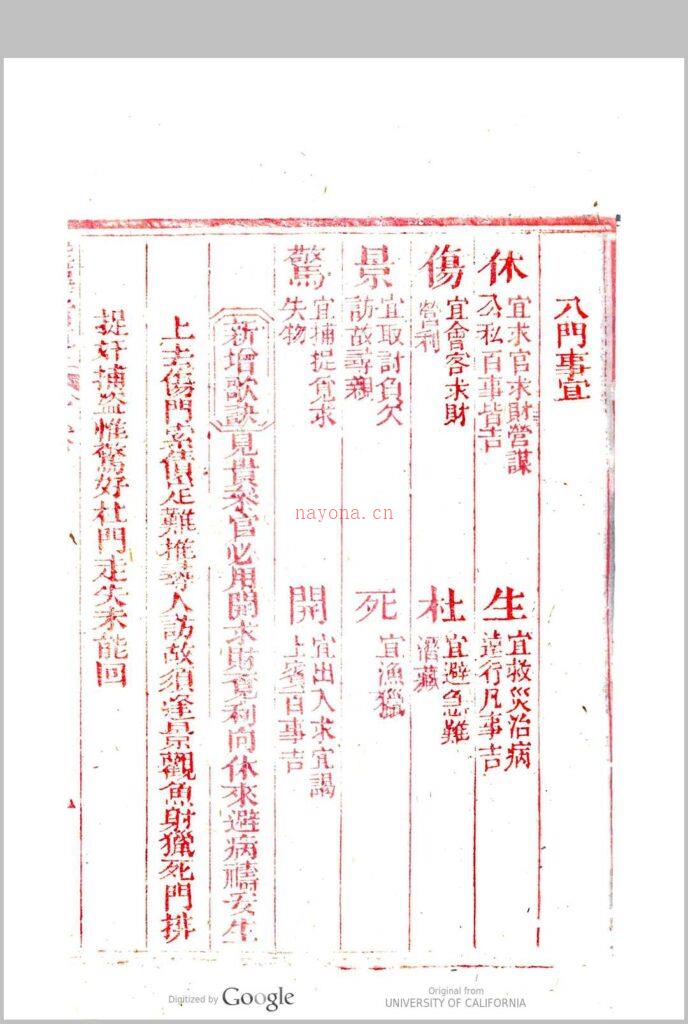 八門事宜
休 宜求官求財營謀
公私百事皆吉
生 宜救災治病
遠行凡事吉
傷 宜會客求財
營利
杜 宜避急難
潛藏
景 宜取討負欠
訪故尋親
死 宜漁獵
驚 宜捕捉覓求
失物
開 宜出入求宜謁
上客百事吉
新增歌訣 見貴參官必用開求財覓利向休來避病禱安生
上去傷門索債定難推尋人訪故須逢景觀魚射獵死門排
捉奸捕盜惟驚好杜門走失未能回
nayona.cn
Digitized by Google
Original from
UNIVERSITY OF CALIFORNIA